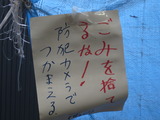 ごみを捨て
るな!
防犯カメラで
つかまえる